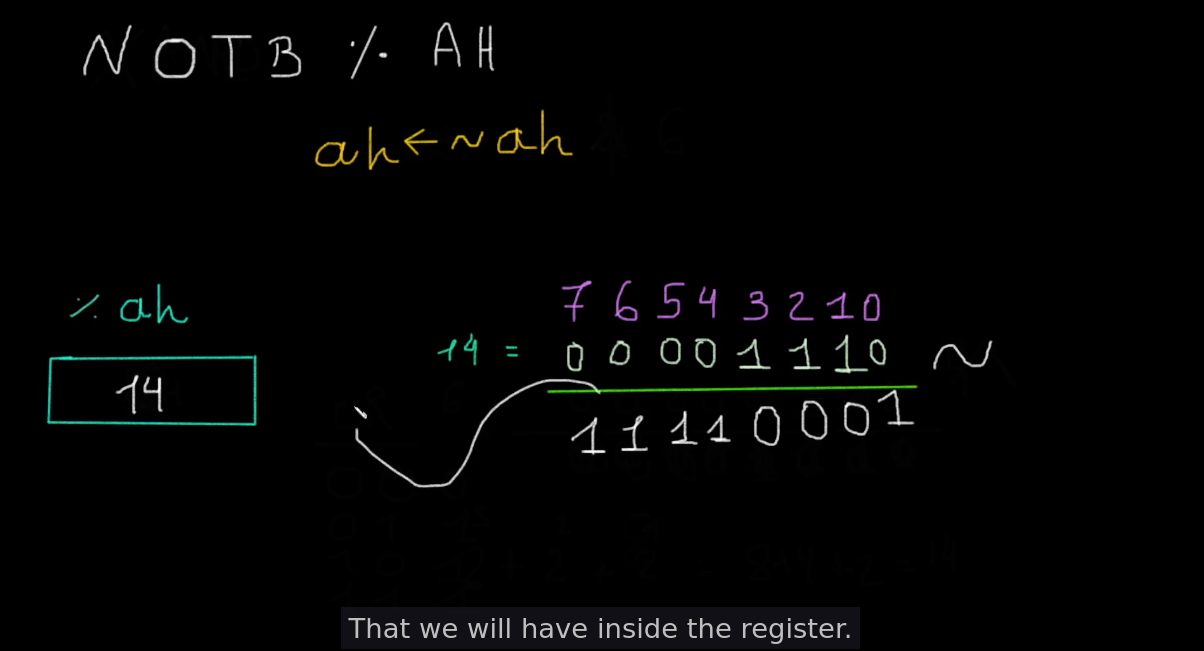 NOTB % AH
ah ← ~ ah
% ah
14
7 6 5 4 3 2 1 0
14 = 0 0 0 0 1 1 1 0 ~
1 1 1 1 0 0 0 1
That we will have inside the register.